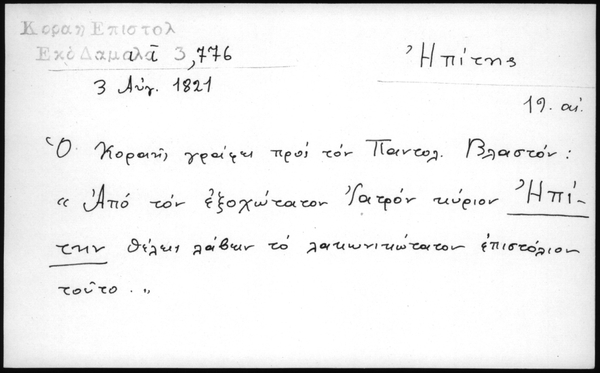 Κοραῆ Επιστολ
Εκδ Δαμαλᾶ 3,776
3 Αὐγ. 1821
Ἠπίτης
19. αἰ.
Ὁ Κοραῆς γράφει πρός τόν Παντολ. Βλαστόν:
« Ἀπό τόν ἐξοχώτατον Ἰατρόν κύριον Ἠπί-
την θέλεις λάβειν τό λακωνικώτατον ἐπιστόλιον
τοῦτο. »